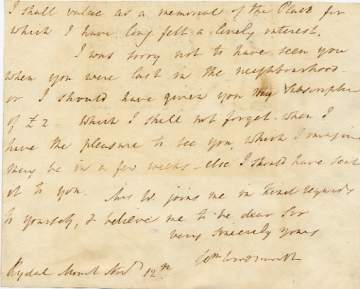 I shall value as a memorial of the Place for
which I have long felt a lively interest.
I was sorry not to have seen you
when you were last in the neighbourhood
or I should have given you my Subscription
of £2 which I shall not forget when I
have the pleasure to see you, which I imagine
may be in a few weeks - else I should have sent
it to you. Mrs W joins me in kind regards
to yourself, & believe me to be dear Sir
very sincerely yours
Wm Wordsworth
Rydal Mount Novr 12th